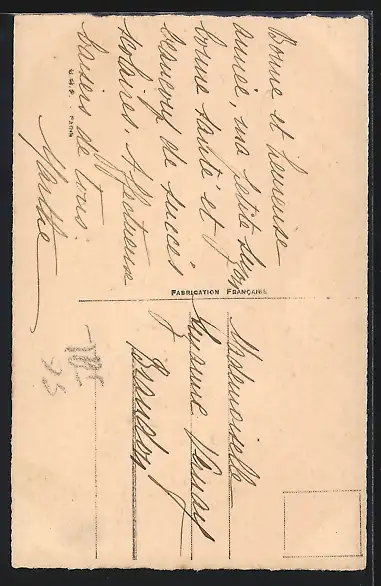 Bonne et heureuse
année, ma petite Suzy
bonne santé et
beaucoup de succès
scolaires. Affectueux
baisers de tous.
Marthe
U.G.P. - PARIS
FABRICATION FRANÇAISE
Mademoiselle
Suzanne
35